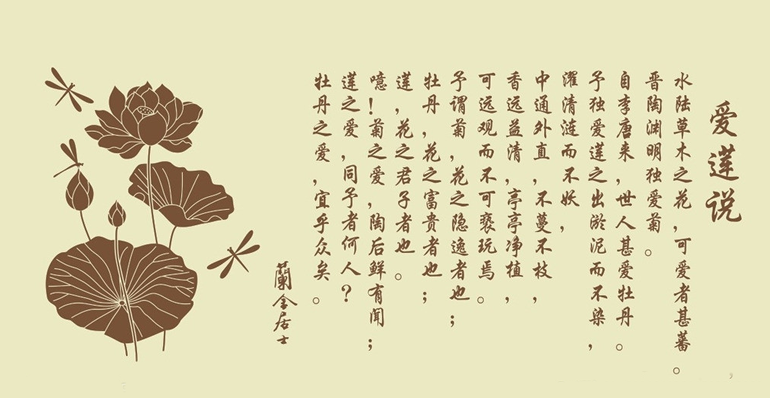 爱莲说
水陆草木之花，可爱者甚蕃。
晋陶渊明独爱菊。
自李唐来，世人甚爱牡丹。
予独爱莲之出淤泥而不染，
濯清涟而不妖，
中通外直，不蔓不枝，
香远益清，亭亭净植，
可远观而不可亵玩焉。
予谓菊，花之隐逸者也；
牡丹，花之富贵者也；
莲，花之君子者也。
噫！菊之爱，陶后鲜有闻；
莲之爱，同予者何人？
牡丹之爱，宜乎众矣。
蘭居士